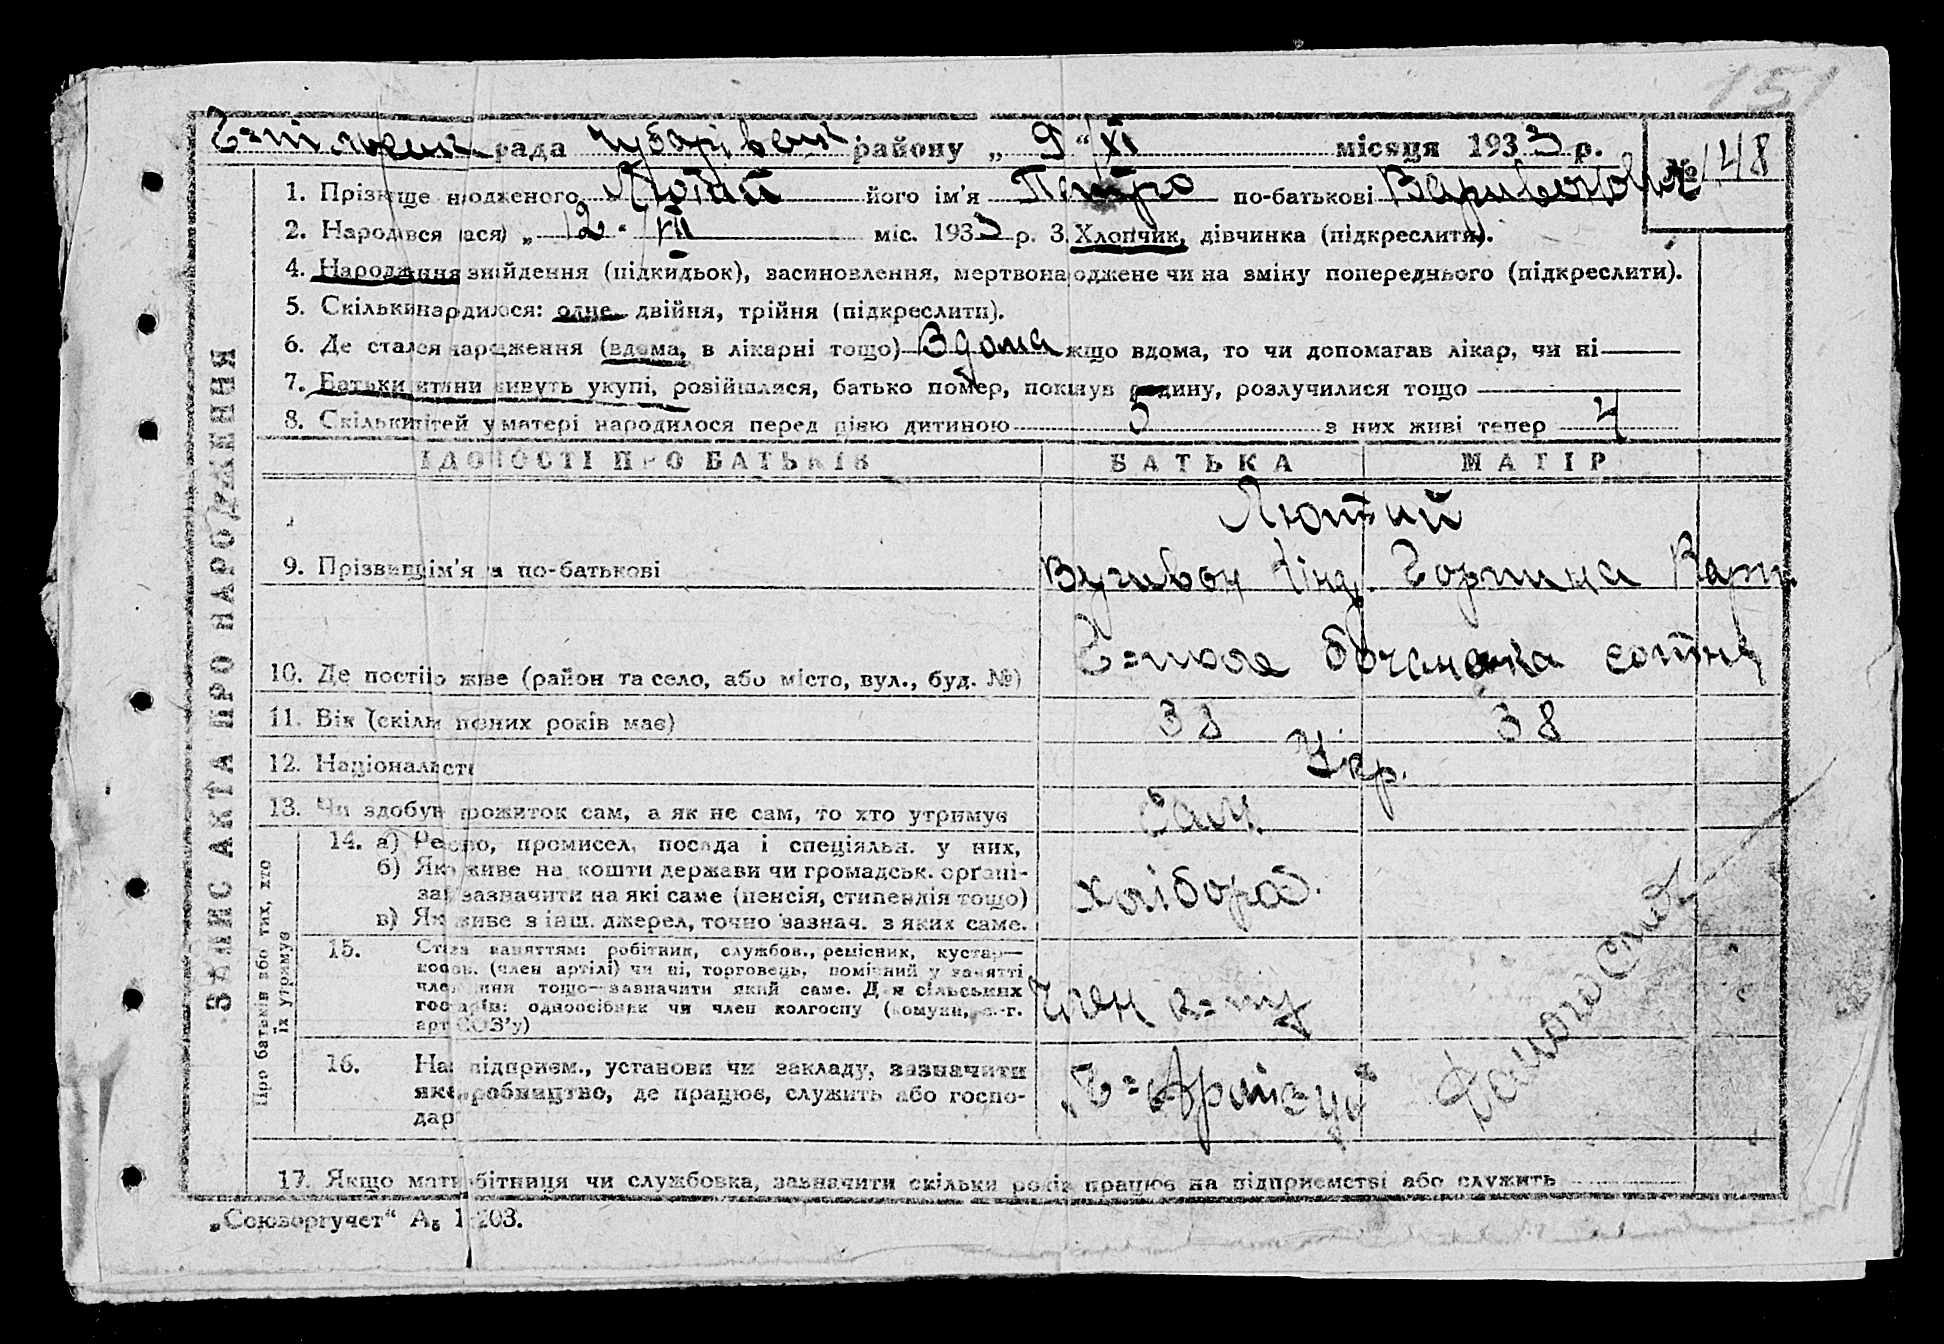 151
Г=пільська рада Чубарівськ. району „ 9 “ XI місяця 1933 р. № 148
1. Прізвище народженого Лютий його ім'я Петро по-батькові
2. Народився (ася) „ 12 - VII міс. 1933 р. 3. Хлопчик, дівчинка (підкреслити).
4. Народження знайдення (підкидьок), засиновлення, мертвонароджене чи на зміну попереднього (підкреслити).
5. Скільки народилося: одне, двійня, трійня (підкреслити).
6. Де сталося народження (вдома, в лікарні тощо) Вдома якщо вдома, то чи допомагав лікар, чи ні
7. Батьки дитини живуть укупі, розійшлися, батько помер, покинув родину, розлучилися тощо
8. Скільки дітей у матері народилося перед цією дитиною 5 з них живі тепер 4
ЗАПИС АКТА ПРО НАРОДЖЕННЯ
ВІДОМОСТІ ПРО БАТЬКІВ БАТЬКА МАТІР
Лютий
9. Прізвище, ім'я та по-батькові Горпина
10. Де постійно живе (район та село, або місто, вул., буд. №) Г=поле сотня
11. Вік (скільки повних років має) 38 38
12. Національність Укр.
13. Чи здобував прожиток сам, а як не сам, то хто утримує Сам
Про батьків або тих, хто їх утримує
14. а) Ремесло, промисел, посада і спеціяльн. у них,
б) Якщо живе на кошти держави чи громадськ. орґані-
зації зазначити на які саме (пенсія, стипендія тощо)
в) Якщо живе з інш. джерел, точно зазнач. з яких саме.
хлібороб.
15. Стан за заняттям: робітник, службов., ремісник, кустар—
член родини тощо—зазначити який саме. Для сільських
господарів: одноосібник чи член колгоспу (комуни, с.-г.
арт. СОЗ'у)
Член к=пу
16. На підприєм., установи чи закладу, зазначити
яке виробництво, де працює, служить або госпо-
дар
17. Якщо мати робітниця чи службовка, зазначити скільки років працює на підприємстві або служить
„Союзоргучет“ А5 1-203.